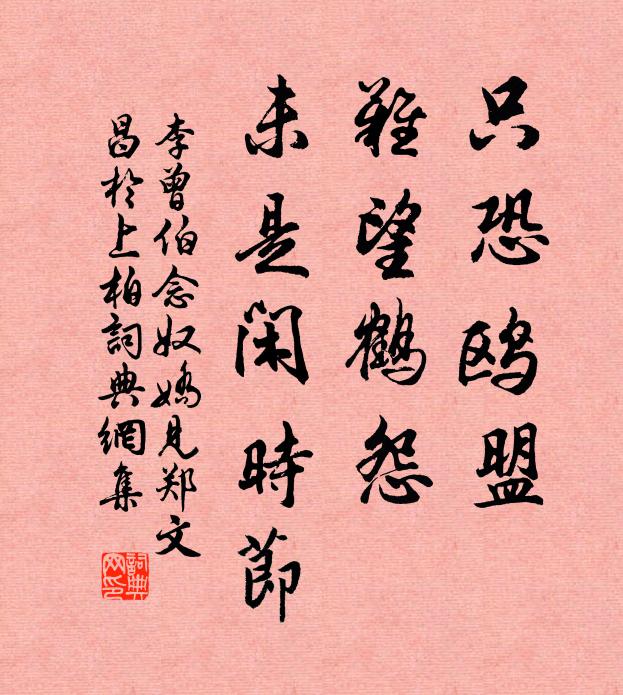 只恐鸥盟
難望鶴怨
未是閑時節
李曾伯念奴嬌見郑文
昌於上柏詞典網集
詞典网印